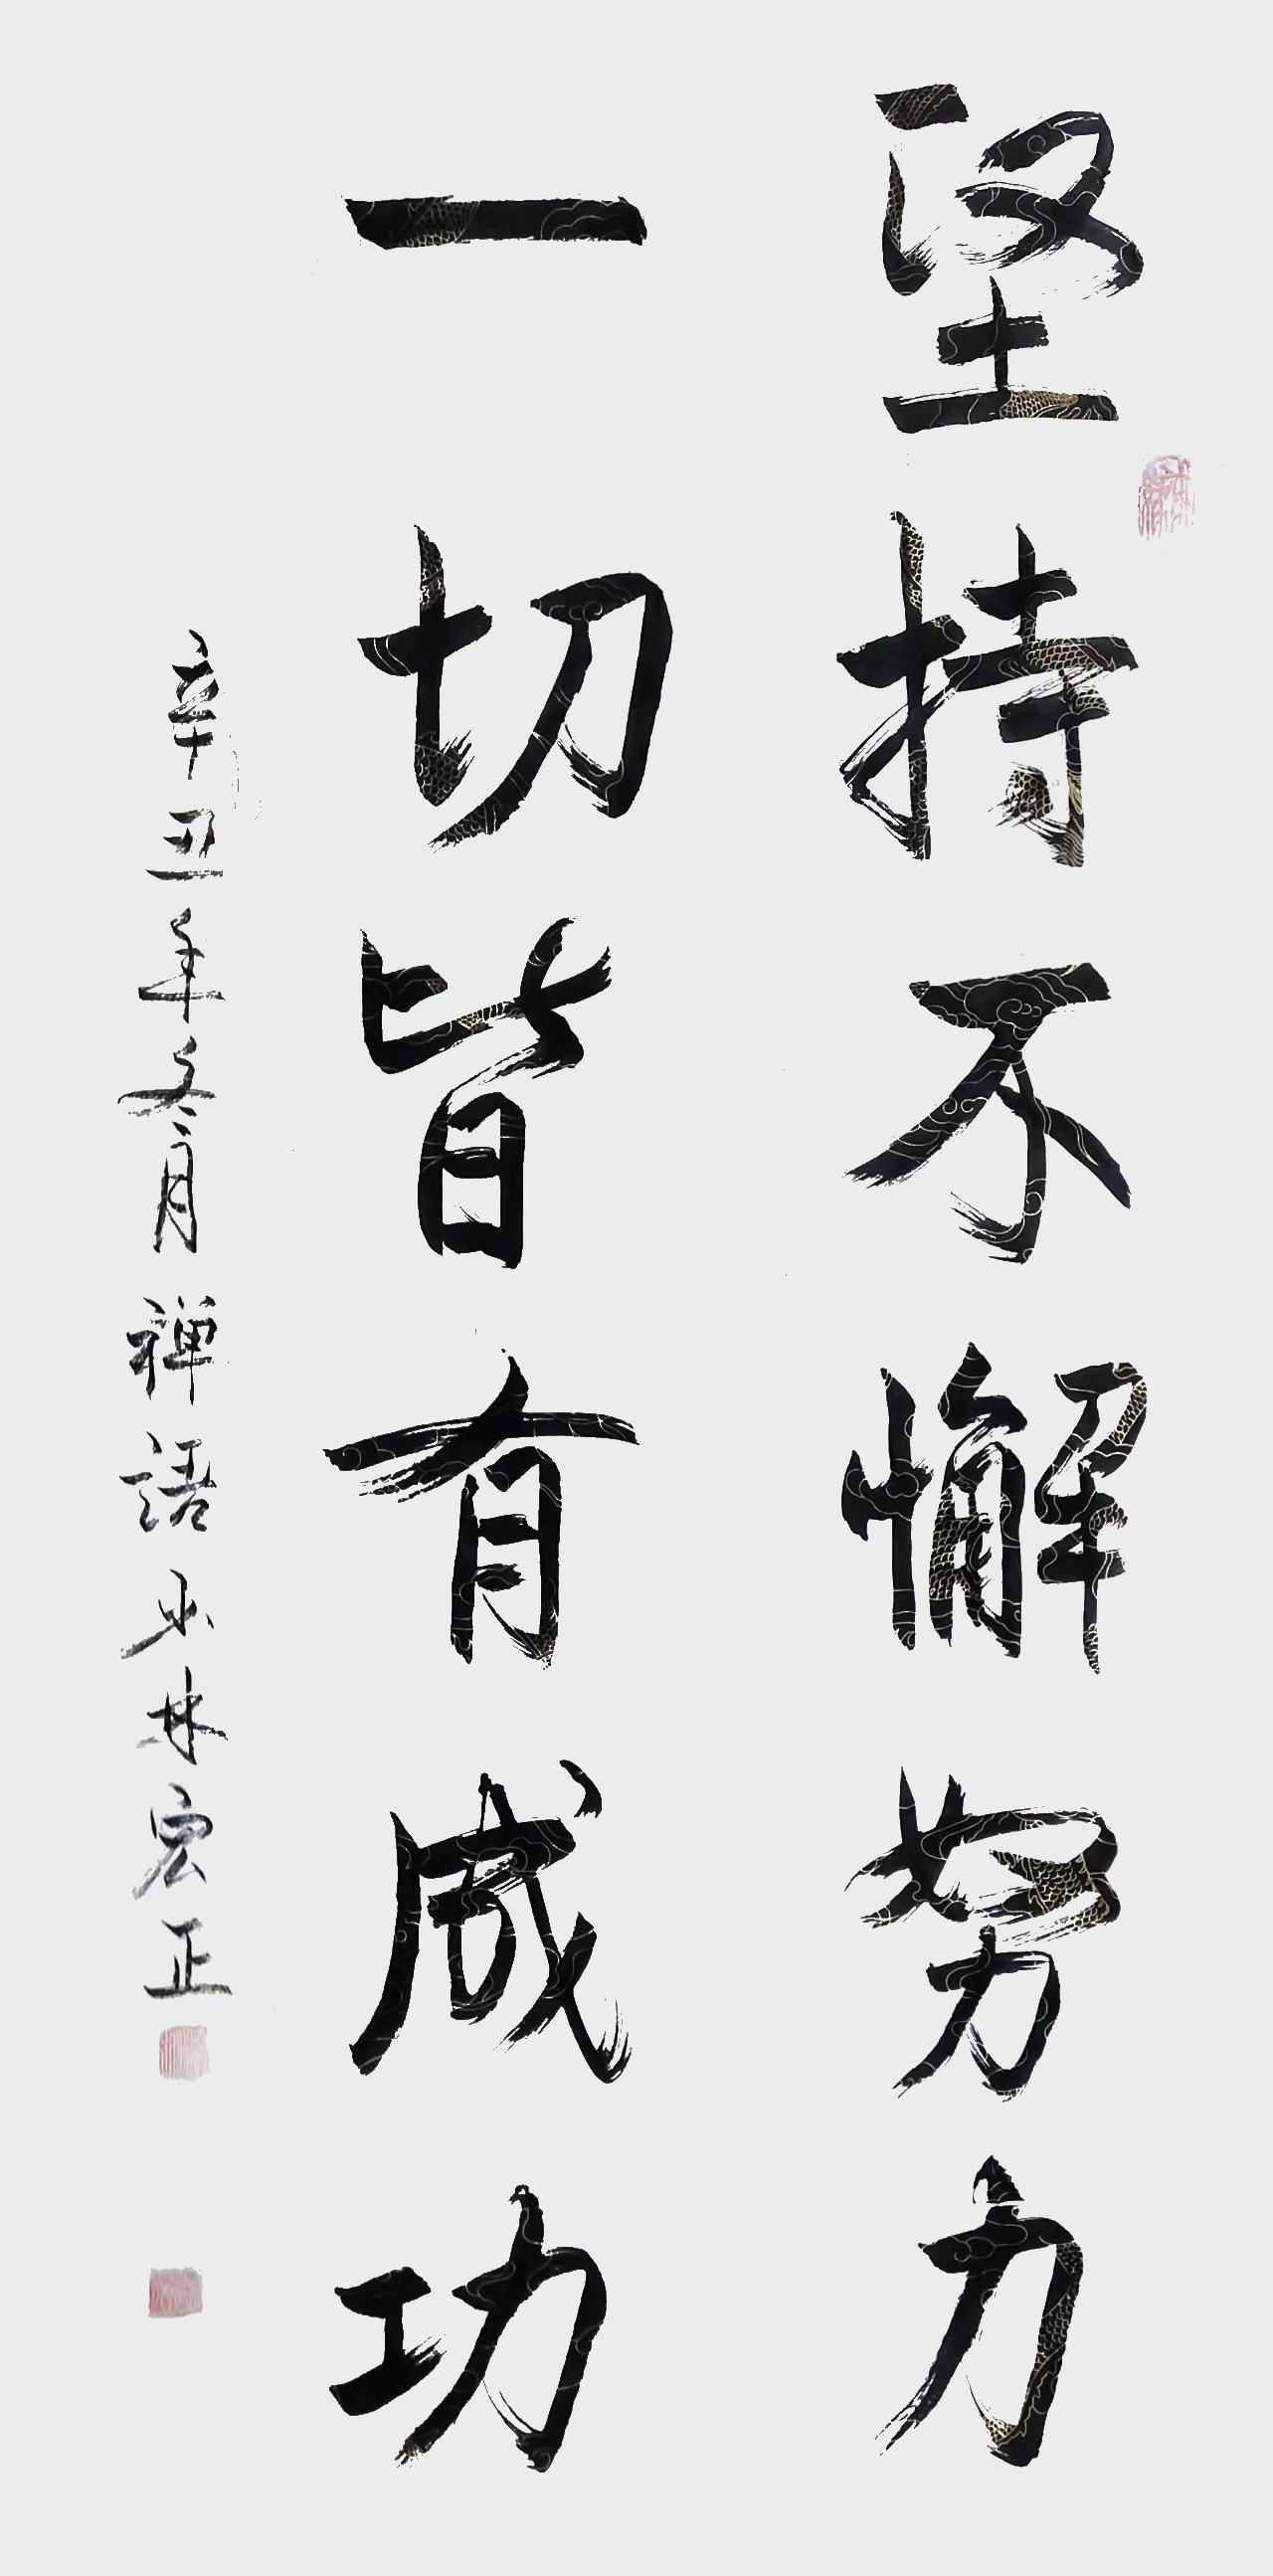 坚持不懈努力
一切皆有成功
辛丑年冬月禅语少林宏正